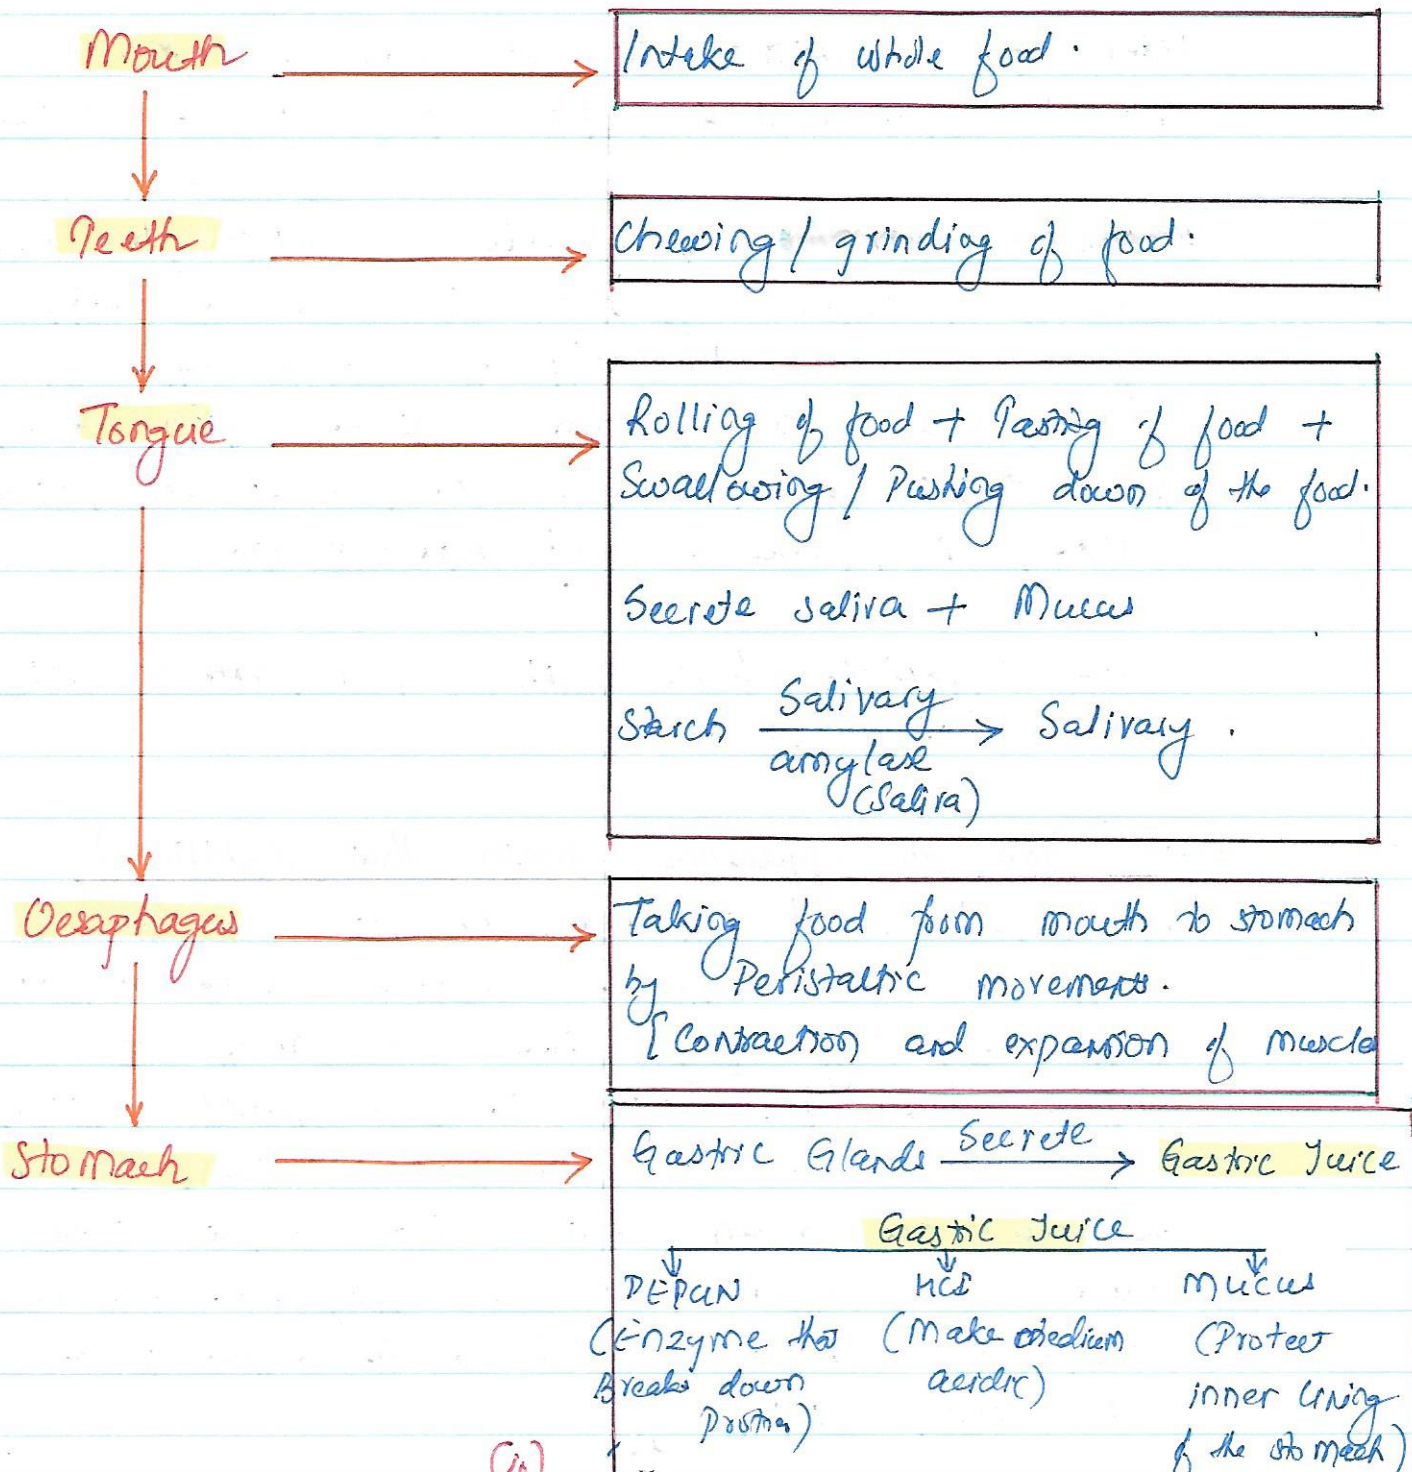 Mouth
Intake of whole food.
Teeth
Chewing / grinding of food.
Tongue
Rolling of food + Tasting of food +
Swallowing / Pushing down of the food.
Secrete saliva + Mucus
Starch Salivary amylase (Saliva) Salivary.
Oesaphagus
Taking food from mouth to stomach
by Peristaltic movements.
[Contraction and expansion of muscle
Stomach
Gastric Glands Secrete Gastric Juice
Gastic Juice
PEPSIN HCl Mucus
(Enzyme that (Make medium (Protect
Breaks down acidic) inner lining
Protien) of the stomach)